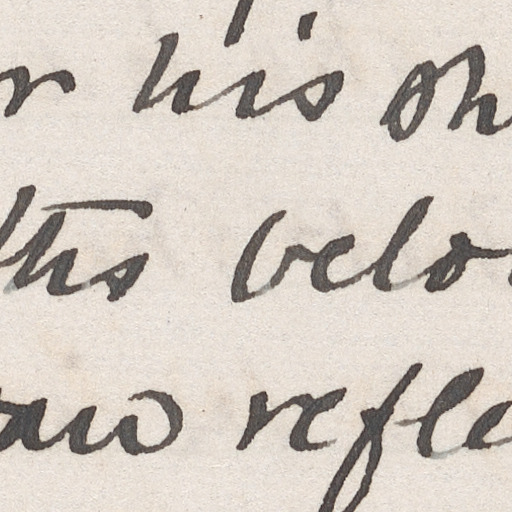 r his sh
ths belo
aw refle